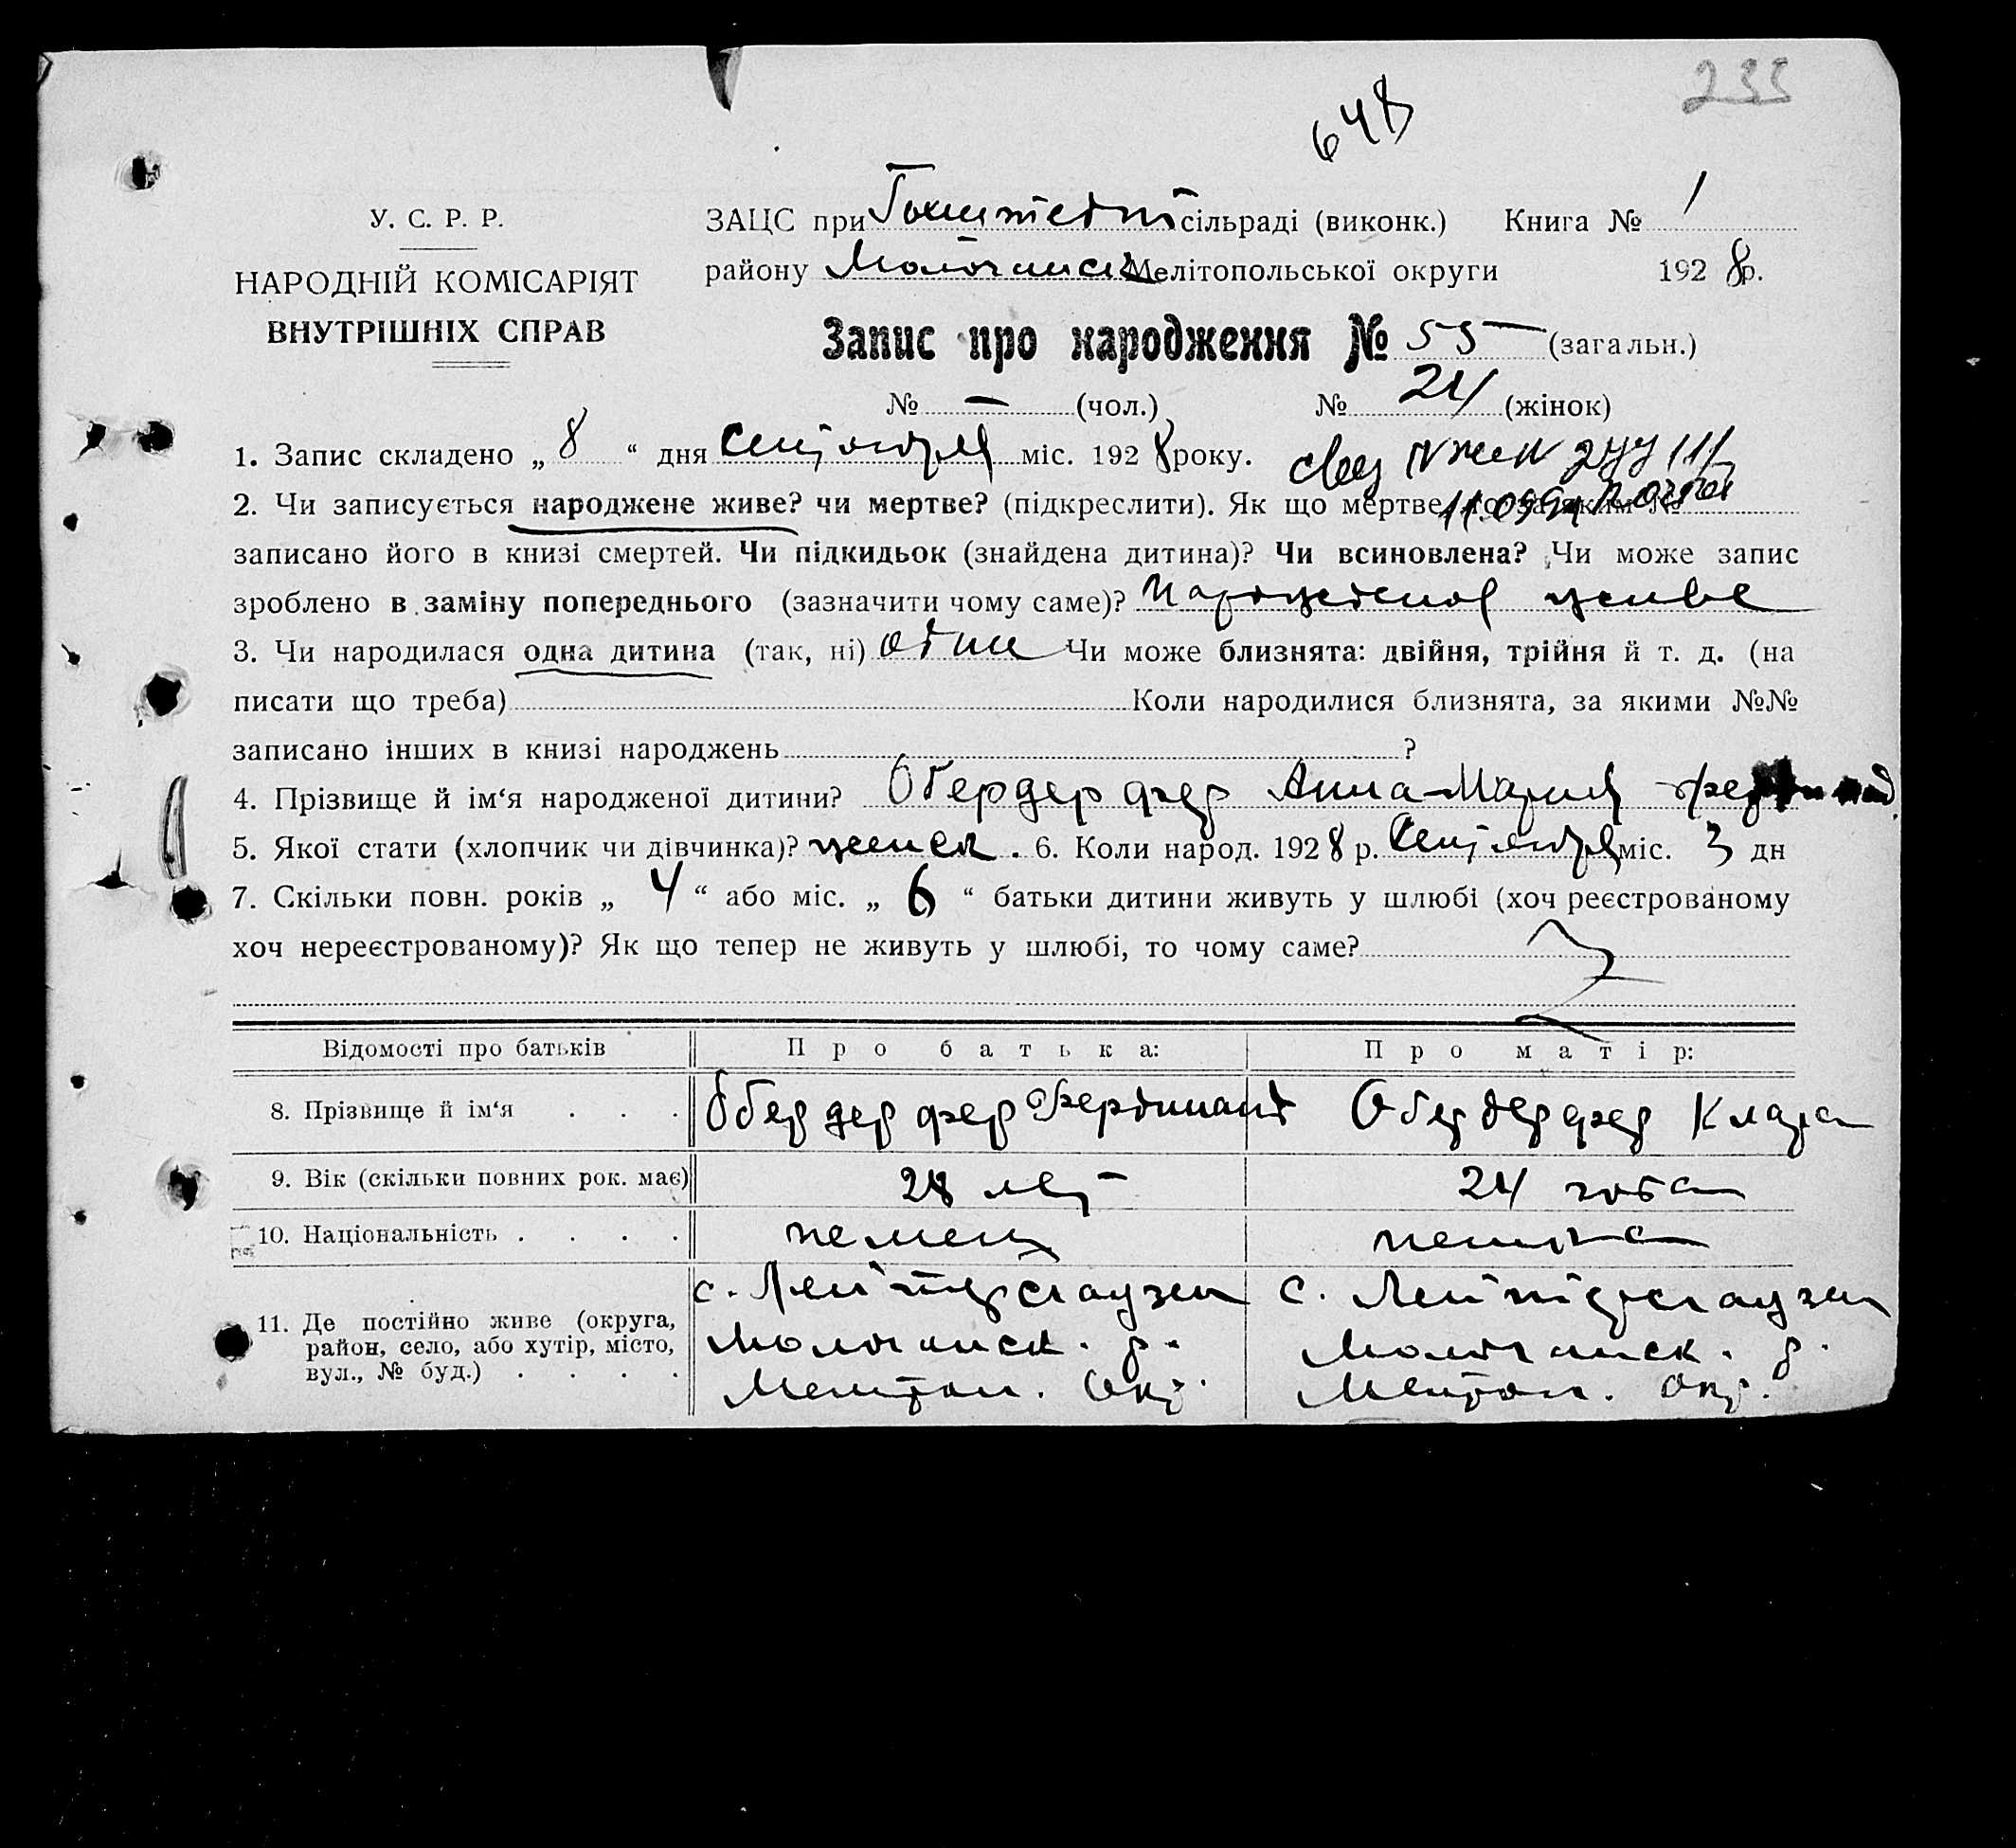 233
648
У. С. Р. Р.
НАРОДНІЙ КОМІСАРІЯТ
ВНУТРІШНІХ СПРАВ
ЗАЦС при Гохштедт сільраді (виконк.) Книга № 1
району Молочанск Мелітопольської округи 1928 р.
Запис про народження № 55 (загальн.)
№ — (чол.) № 24 (жінок)
1. Запис складено „ 8 “ дня Сентября міс. 1928 року.
2. Чи записується народжене живе? чи мертве? (підкреслити). Як що мертве,
записано його в книзі смертей. Чи підкидьок (знайдена дитина)? Чи всиновлена? Чи може запис
зроблено в заміну попереднього (зазначити чому саме)? живе
3. Чи народилася одна дитина (так, ні) один Чи може близнята: двійня, трійня й т. д. (на
писати що треба) Коли народилися близнята, за якими №№
записано інших в книзі народжень ?
4. Прізвище й ім‘я народженої дитини? Обердерфер Анна-Мария
5. Якої стати (хлопчик чи дівчинка)? женск. 6. Коли народ. 1928 р. Сентября міс. 3 дн
7. Скільки повн. років „ 4 “ або міс. „ 6 “ батьки дитини живуть у шлюбі (хоч реєстрованому
хоч нереєстрованому)? Як що тепер не живуть у шлюбі, то чому саме?
Відомості про батьків Про батька: Про матір:
8. Прізвище й ім‘я . . . Обердерфер Фердинанд Обердерфер Клара
9. Вік (скільки повних рок. має) 28 лет 24 года
10. Національність . . . . немец немка
11. Де постійно живе (округа, район, село, або хутір, місто, вул., № буд.) . . . .
с. Лейтерсгаузен
Молочанск. р.
Мелитоп. Окр.
с. Лейтерсгаузен
Молочанск. р.
Мелитоп. окр.